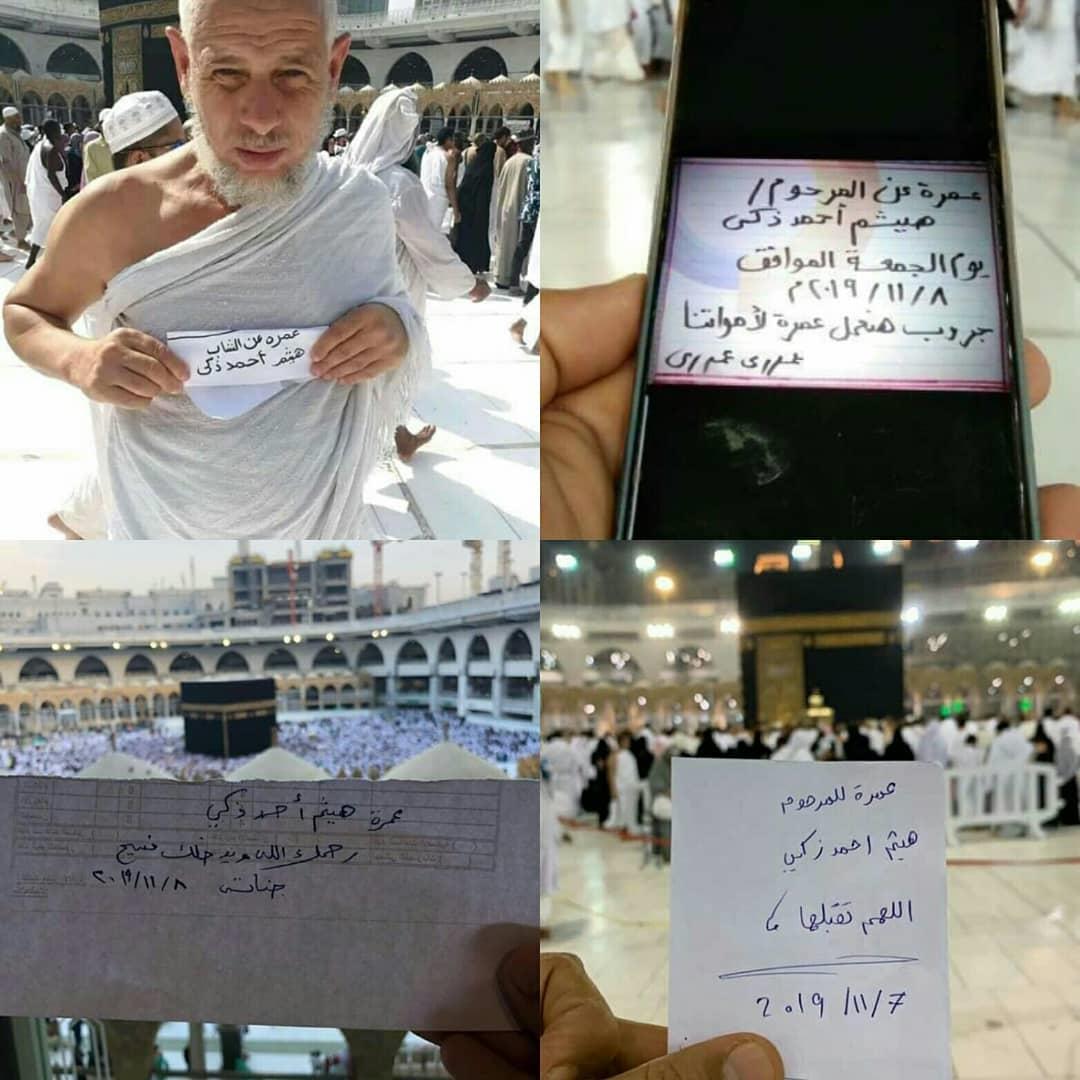 عمره عن الشاب
هيثم أحمد ذكى
عمرة عن المرحوم/
هيثم أحمد ذكى
يوم الجمعة الموافق
٢٠١٩/١١/٨م
جروب هنعمل عمرة لأمواتنا
عمرة هيثم أحمد ذكي
رحمك الله ويدخلك فسيح
جناته ٢٠١٩/١١/٨
عمرة للمرحوم
هيثم احمد زكي
اللهم تقبلها
2019/11/7